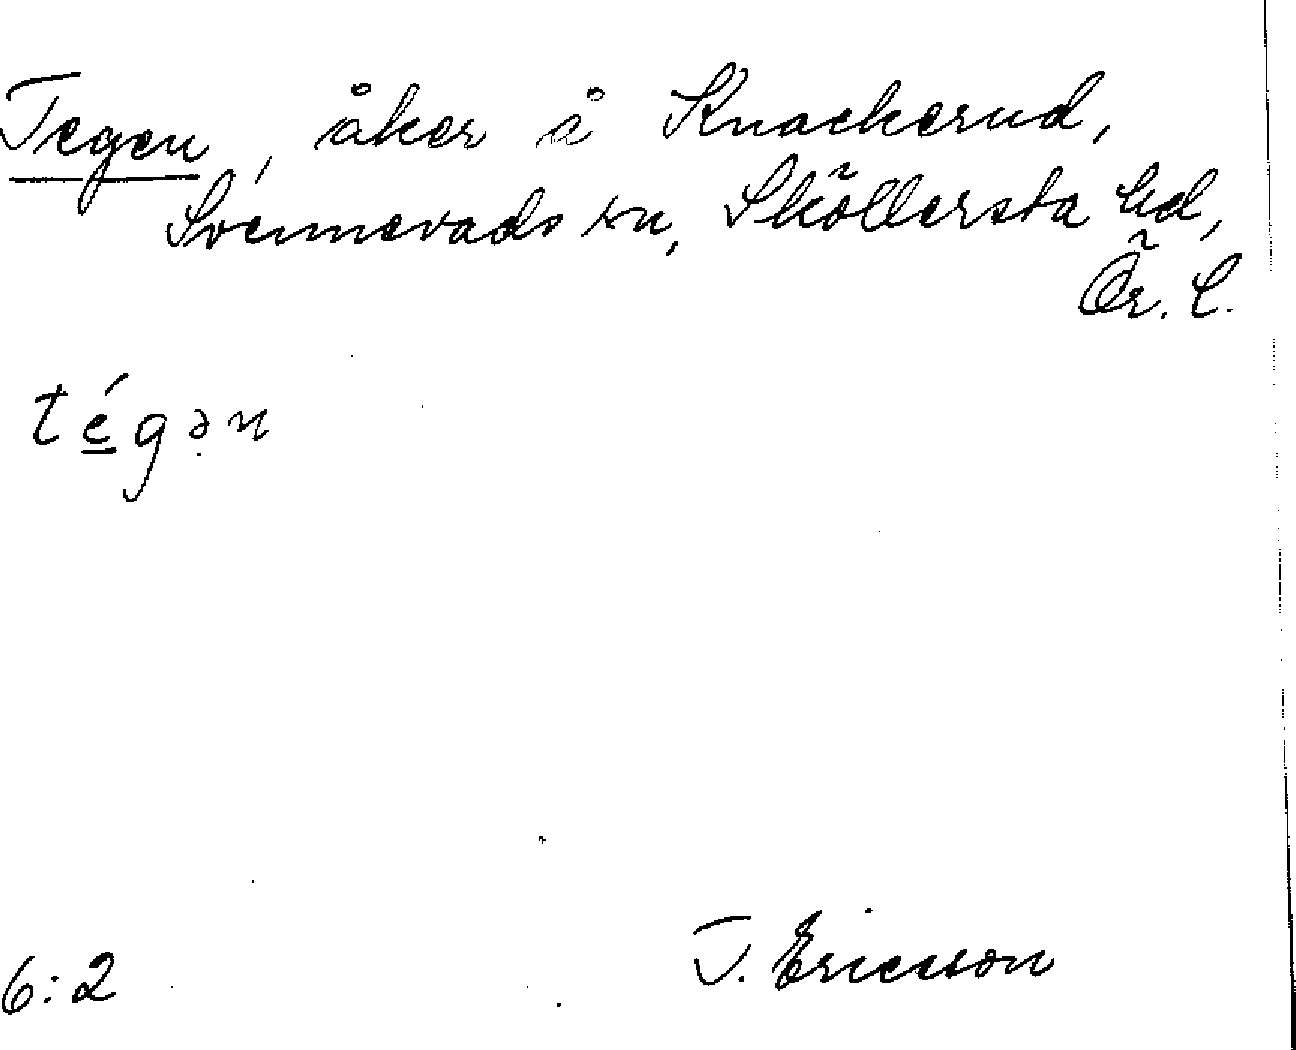 Tegen, åker å Knackerud,
Svennevads sn, Sköllersta hd,
Ör. l.
té̲gən
6:2
T. Ericsson